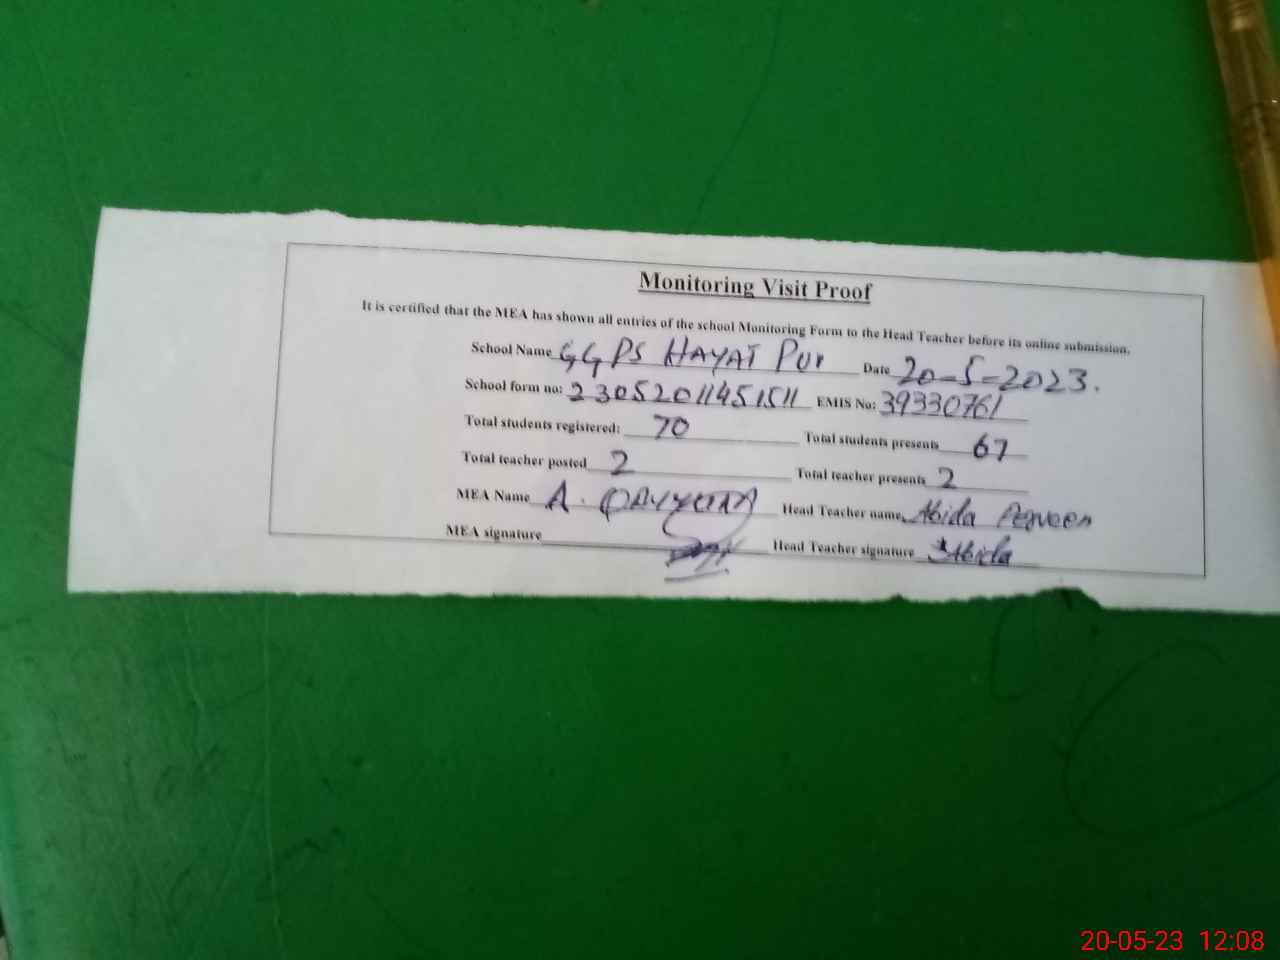 Monitoring Visit Proof
It is certified that the MEA has shown all entries of the school Monitoring Form to the Head Teacher before its online submission.
School Name GGPS HAYAT PUR Date 20-5-2023.
School form no: 23052011451511 EMIS No: 39330761
Total students registered: 70 Total students presents 67
Total teacher posted 2 Total teacher presents 2
MEA Name A. QAYYUM Head Teacher name Abida Perveen
MEA signature Head Teacher signature Abida
20-05-23 12:08